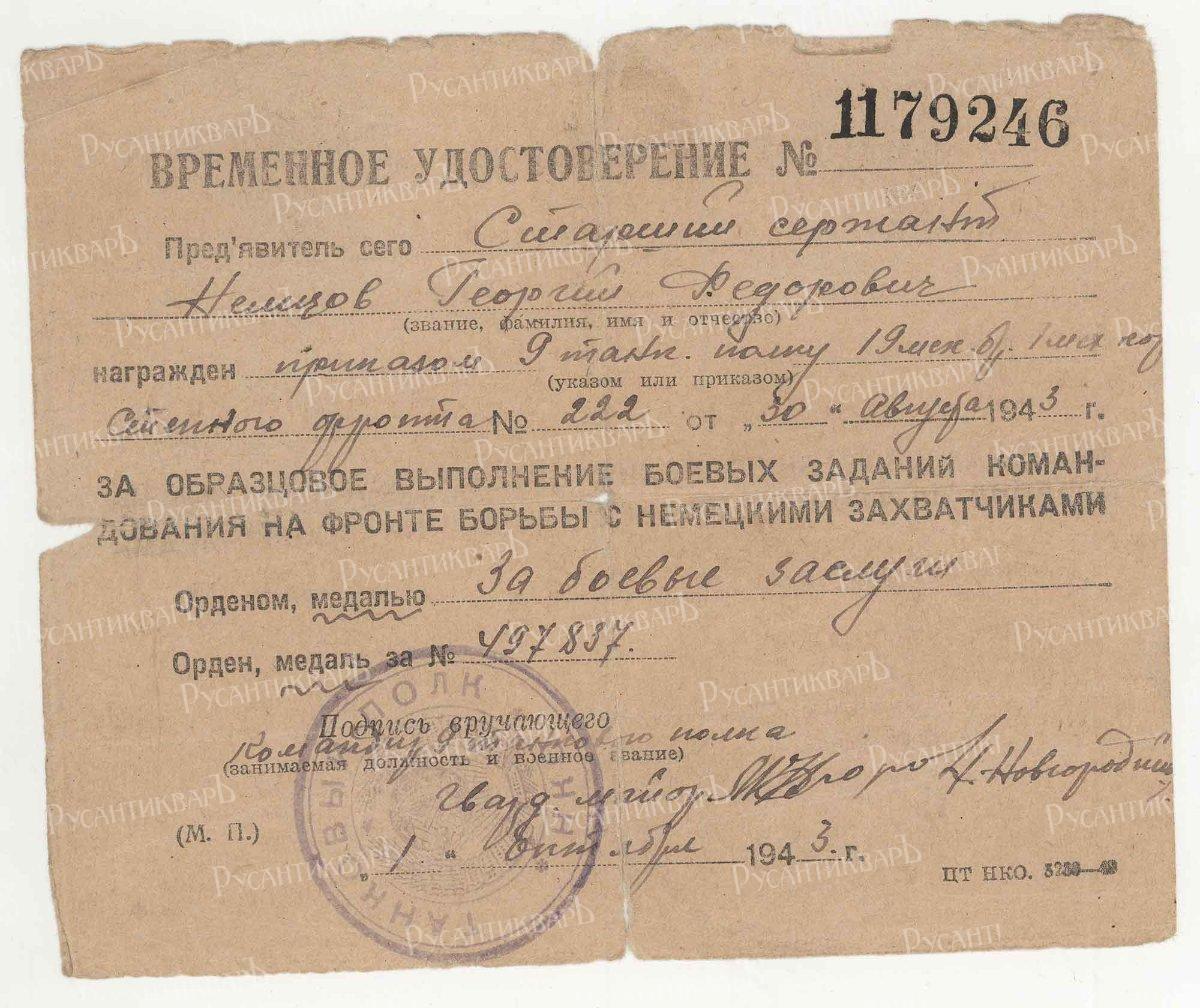 ВРЕМЕННОЕ УДОСТОВЕРЕНИЕ № 1179246
Пред'явитель сего Старший сержант
Немцов Георгий Федорович
(звание, фамилия, имя и отчество)
награжден приказом 9 танк. полку 19 мех. бр. 1 мех кор
(указом или приказом)
Степного фронта № 222 от „30" Августа 1943 г.
ЗА ОБРАЗЦОВОЕ ВЫПОЛНЕНИЕ БОЕВЫХ ЗАДАНИЙ КОМАН-
ДОВАНИЯ НА ФРОНТЕ БОРЬБЫ С НЕМЕЦКИМИ ЗАХВАТЧИКАМИ
Орденом, медалью За боевые заслуги
Орден, медаль за № 497837.
Подпись вручающего
Командир 9 танкового полка
(занимаемая должность и военное звание)
Гвард. майор Новгородцы
(М. П.)
„1" Октября 1943 г.
ЦТ НКО.
ТАНКОВЫЙ ПОЛК
РусантикварЪ